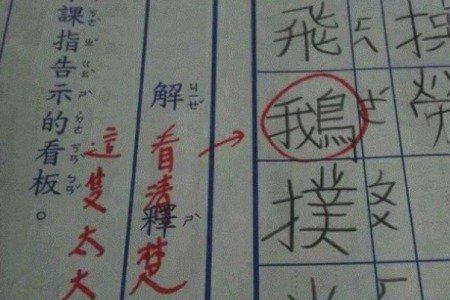 操勞
飛鵝撲
解釋
看清楚
這隻太大
課指告示的看板。